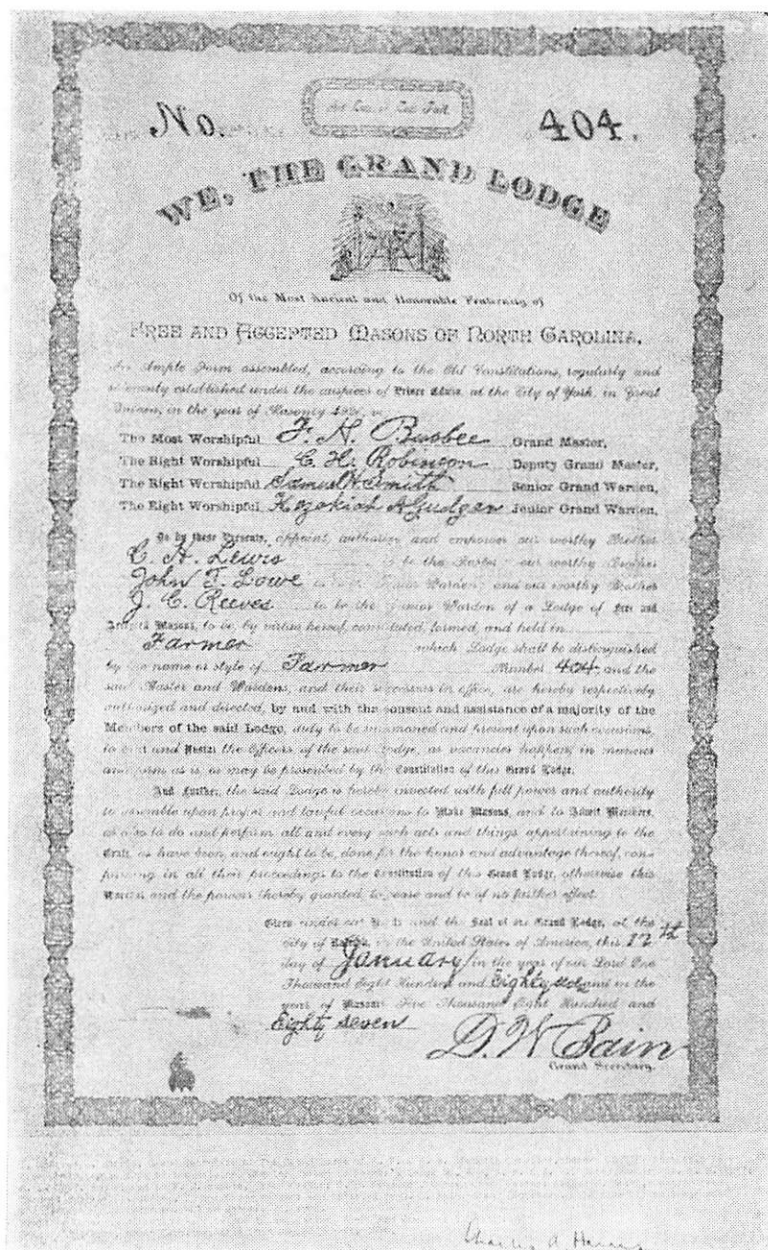 No. 404.
WE, THE GRAND LODGE
Of the Most Ancient and Honorable Fraternity of
FREE AND ACCEPTED MASONS OF NORTH CAROLINA,
In Ample Form assembled, according to the Old Constitutions, regularly and
solemnly established under the auspices of Prince Edwin, at the City of York, in Great
Britain, in the year of Masonry 4926,
The Most Worshipful F. H. Busbee Grand Master,
The Right Worshipful C. H. Robinson Deputy Grand Master,
The Right Worshipful Samuel H. Smith Senior Grand Warden,
The Right Worshipful Hezekiah A Gudger Junior Grand Warden,
Do by these Presents, appoint, authorize and empower our worthy Brother
C. H. Lewis to be the Master; our worthy Brother
John T. Lowe Warden; and our worthy Brother
J. C. Reeves to be the Junior Warden of a Lodge of Free and
Accepted Masons, to be, by virtue hereof, constituted, formed, and held in
Farmer which Lodge shall be distinguished
by the name or style of Farmer Number 404, and the
said Master and Wardens, and their successors in office, are hereby respectively
authorized and directed, by and with the consent and assistance of a majority of the
Members of the said Lodge, duly to be summoned and present upon such occasions,
to elect and Install the Officers of the said Lodge, as vacancies happen, in manner
and form as is, or may be prescribed by the Constitution of this Grand Lodge.
And further, the said Lodge is hereby invested with full power and authority
to assemble upon proper and lawful occasions to Make Masons, and to Admit Members,
as also to do and perform all and every such acts and things appertaining to the
Craft, as have been, and ought to be, done for the honor and advantage thereof, con-
forming in all their proceedings to the Constitution of this Grand Lodge, otherwise this
Warrant and the powers thereby granted, to cease and be of no further effect.
Given under our Hands and the Seal of our Grand Lodge, at the
City of Raleigh, in the United States of America, this 12th
day of January in the year of our Lord One
Thousand Eight Hundred and Eighty and in the
year of Masonry Five Thousand Eight Hundred and
Eighty seven
D. W. Bain
Grand Secretary.
Charles A.